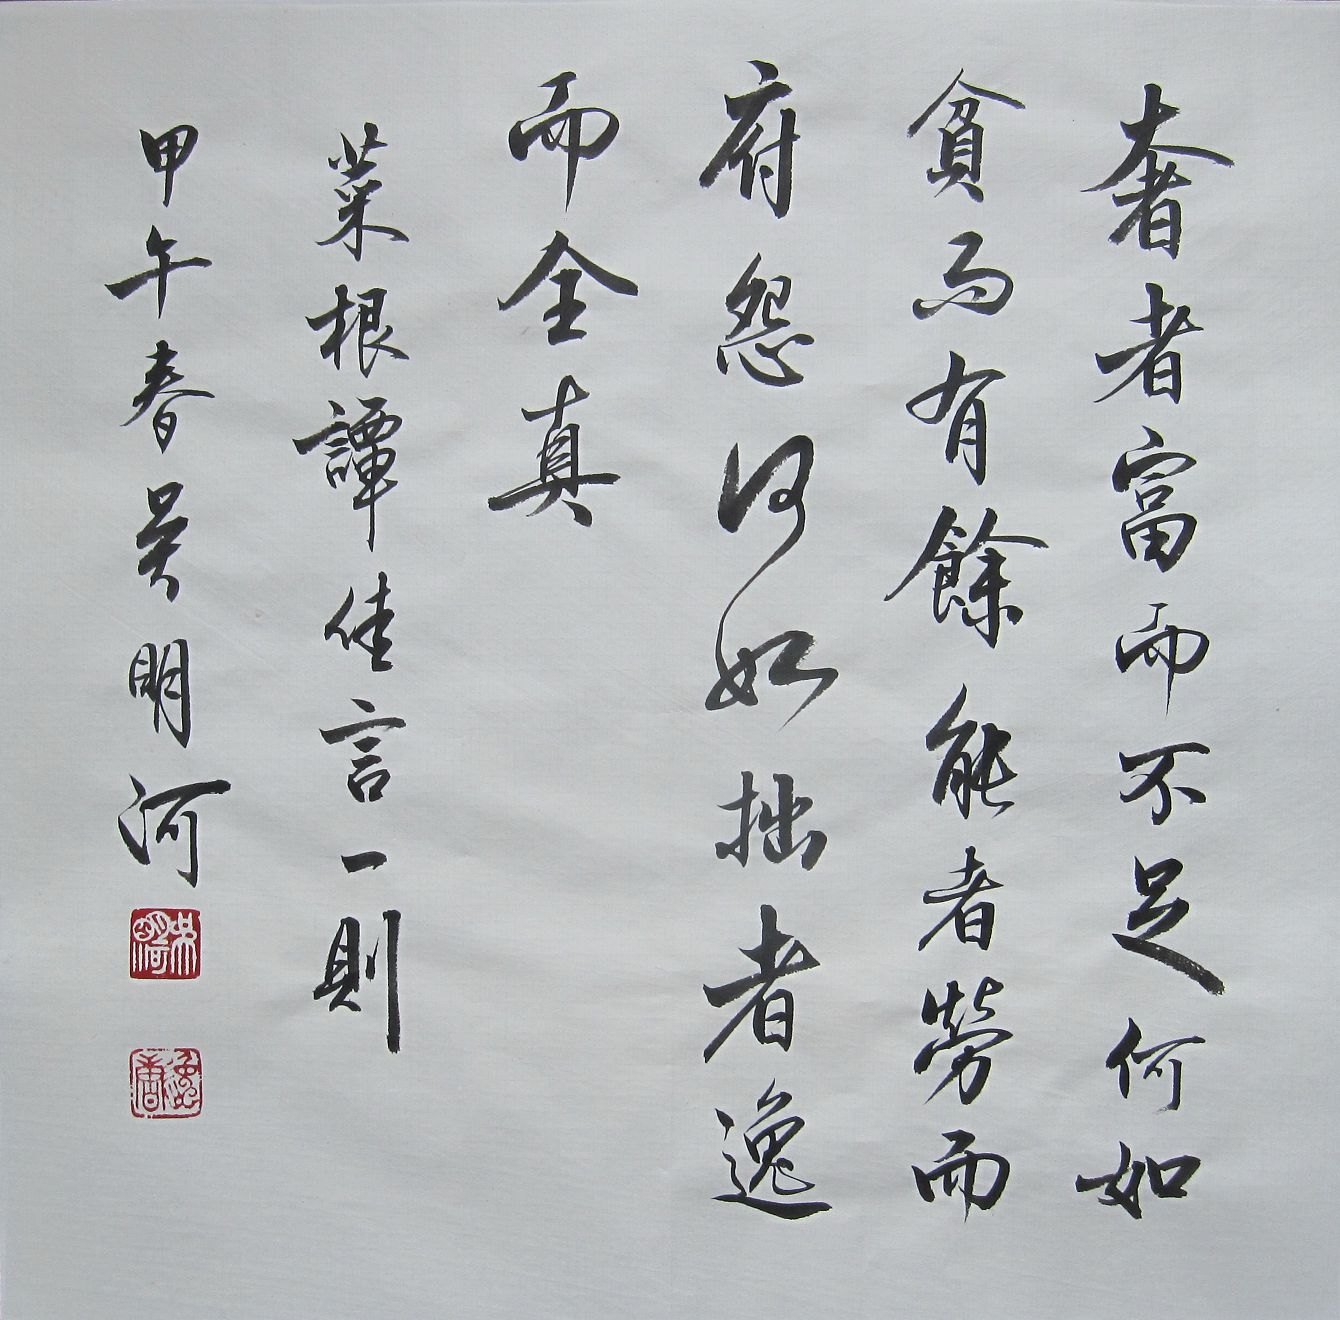 奢者富而不足何如
貧而有餘能者勞而
府怨何如拙者逸
而全真
菜根譚佳言一則
甲午春吴明河
吴明河